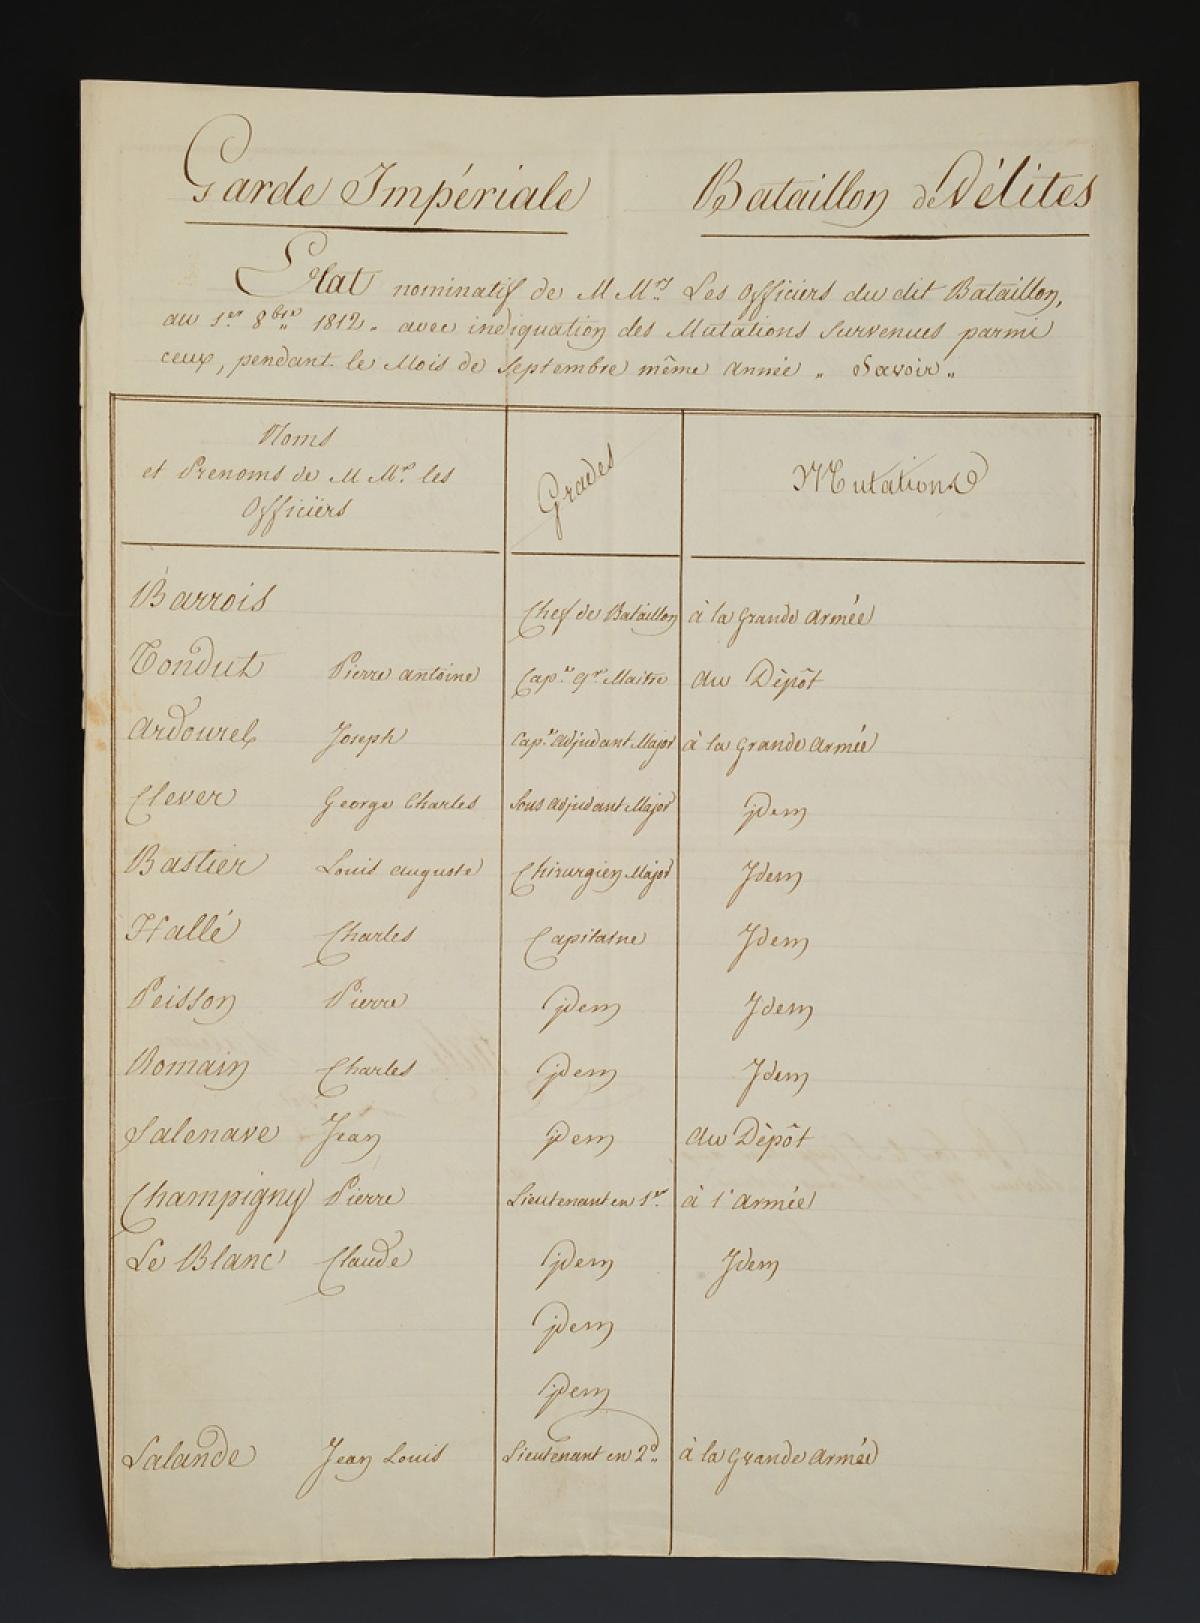 Garde Impériale Bataillon de Vélites
Etat nominatif de M Mrs. Les Officiers du dit Bataillon,
au 1er. 8bre 1812. avec indiquation des Mutations Survenues parmi
ceux, pendant le Mois de Septembre même année „ Savoir „
Noms
et Prenoms de M Mrs. les
Officiers
Grades
Mutations
Barrois Chef de Bataillon à la Grande Armée
Tondut Pierre antoine Capne. qr. Maitre au Dèpôt
Ardourel Joseph Capne. adjudant Major à la Grande Armée
Clever George Charles Sous adjudant Major jdem
Bastier Louis auguste Chirurgien Major Jdem
Hallé Charles Capitaine Jdem
Peisson Pierre jdem Jdem
Romain Charles jdem Jdem
Salenave Jean jdem au Dèpôt
Champigny Pierre Lieutenant en 1er. à l'Armée
Le Blanc Claude jdem Jdem
jdem
jdem
Lalande Jean Louis Lieutenant en 2d. à la Grande Armée